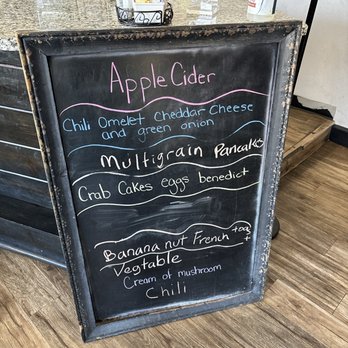 Apple Cider
Chili Omelet cheddar cheese
and green onion
Multigrain Pancake
Crab Cakes eggs benedict
Banana nut French toast
Vegtable
Cream of mushroom
Chili